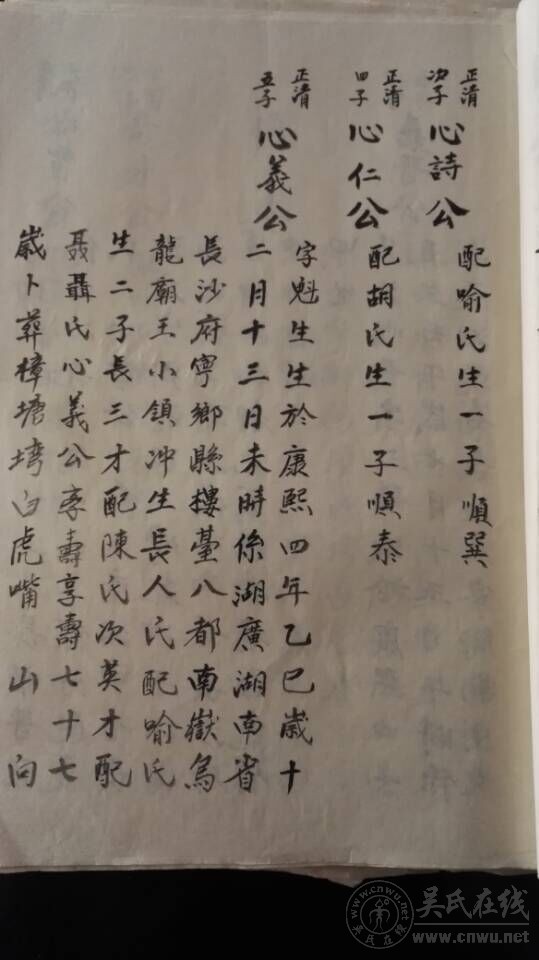 正清
次子
心詩公
配喻氏生一子順巽
正清
四子
心仁公
配胡氏生一子順泰
正清
五子
心義公
字魁生生於康熙四年乙巳歲十
二月十三日未時係湖廣湖南省
長沙府寧鄉縣樓臺八都南嶽烏
龍廟王小領冲生長人氏配喻氏
生二子長三才配陳氏次英才配
聶聶氏心義公享壽享壽七十七
歲卜葬樟塘塆白虎嘴山向
吴氏在线
www.cnwu.net